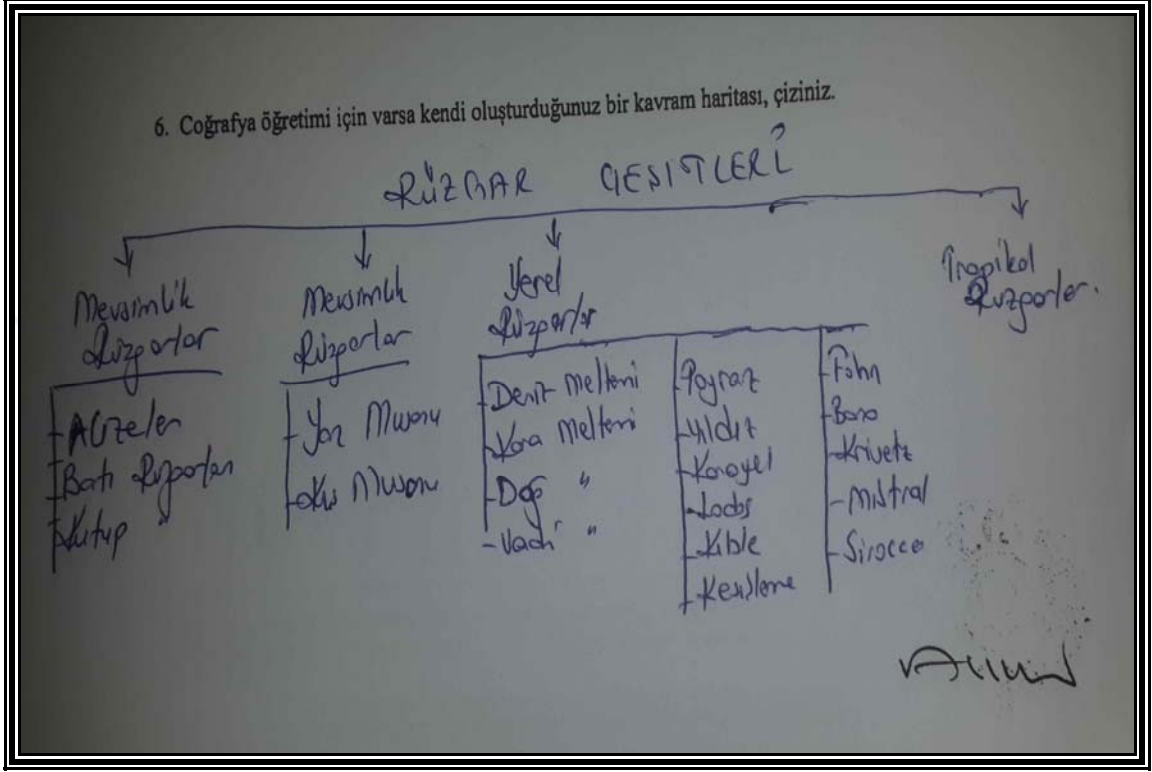 6. Coğrafya öğretimi için varsa kendi oluşturduğunuz bir kavram haritası, çiziniz.
RÜZGAR ÇEŞİTLERİ
Mevsimlik
Rüzgarlar
Alizeler
Batı Rüzgarları
Kutup "
Mevsimlik
Rüzgarlar
Yaz Musonu
Kış Musonu
Yerel
Rüzgarlar
Deniz Meltemi
Kara Meltemi
Dağ "
Vadi "
Poyraz
Yıldız
Karayel
Lodos
Kıble
Keşişleme
Föhn
Bora
Krivetz
Mistral
Sirocco
Tropikal
Rüzgarlar.